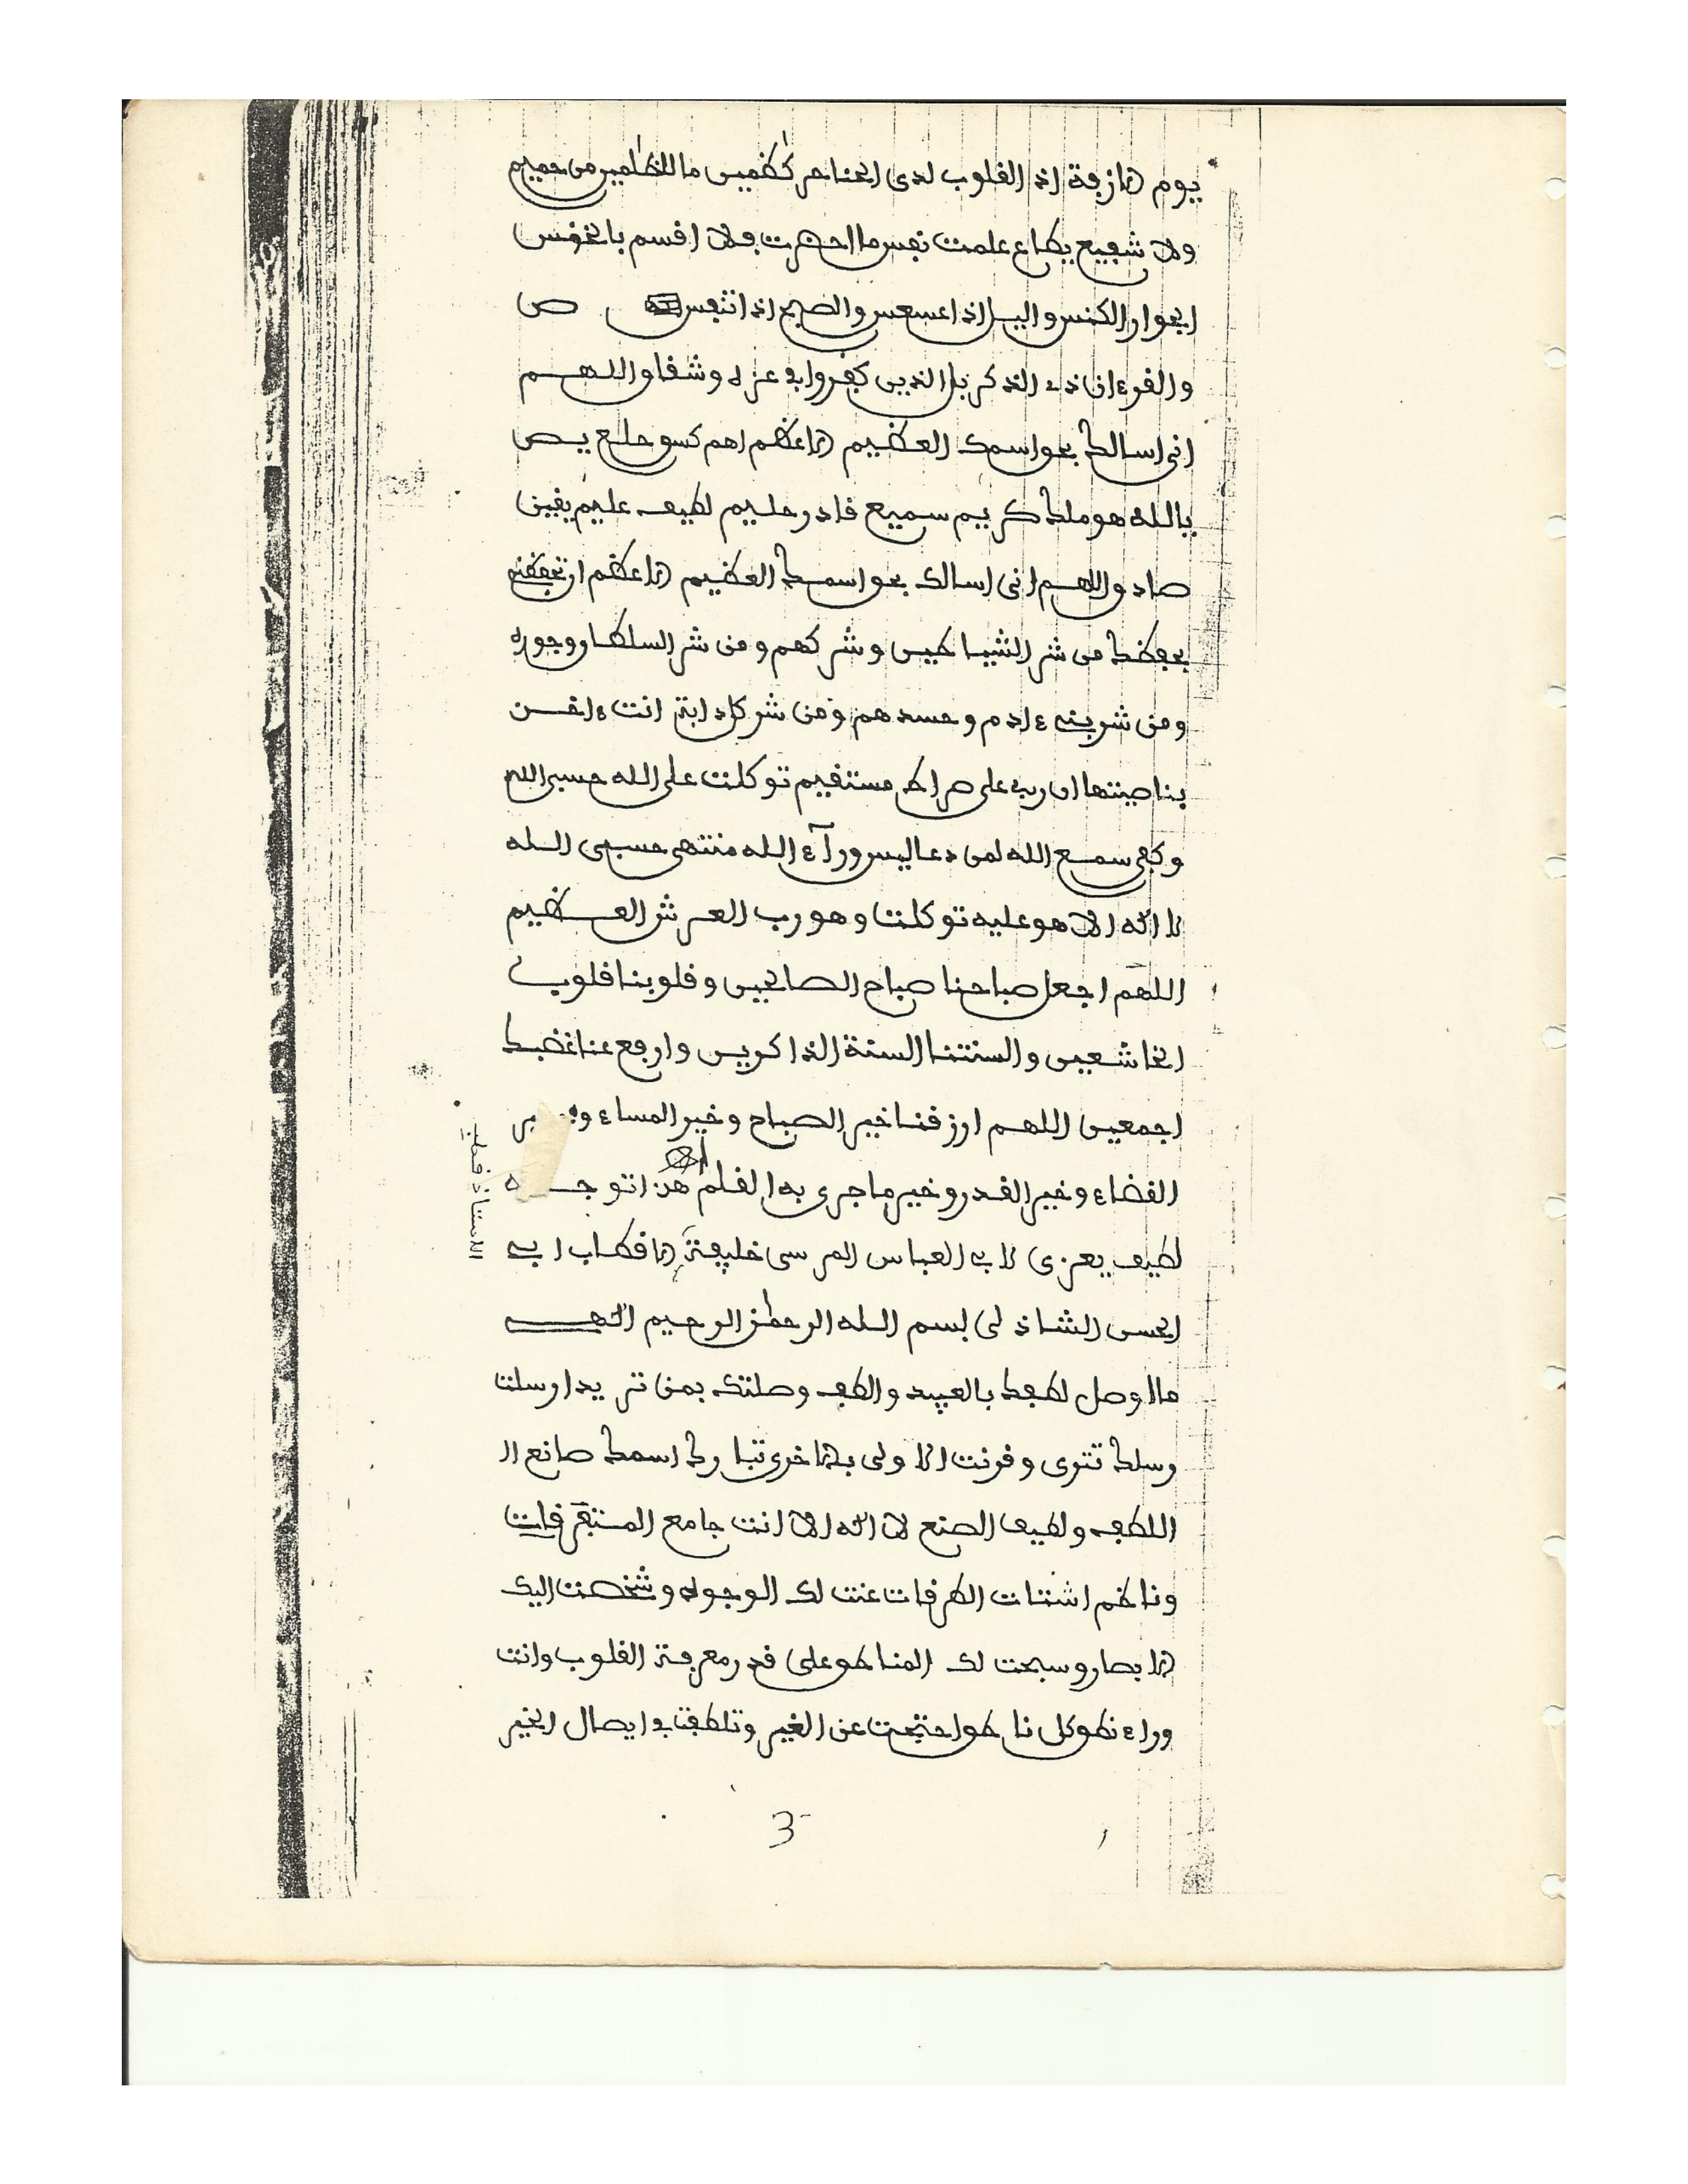 يوم الازفة اذ القلوب لدى الحناجر كٰظمين ما للظٰلمين من حميم
ولا شفيع يطاع علمت نفس ما احضرت فلا اقسم بالخنس
الجوار الكنس واليل اذا عسعس والصبح اذا تنفس ص
والقرءان ذى الذكر بل الذين كفروا فى عزة وشقاق اللهم
انى اسالك بحق اسمك العظيم الاعظم اهم كسق حلع يص
بالله هو ملك كريم سميع قادر حليم لطيف عليم يقين
صادق اللهم انى اسالك بحق اسمك العظيم الاعظم ان تحفظنى
بحفظك من شر الشياطين وشركهم ومن شر السلطان وجوره
ومن شر بنى ءادم وحسدهم ومن شر كل دابة انت ءاخذ
بناصيتها ان ربى على صراط مستقيم توكلت على الله حسبى الله
وكفى سمع الله لمن دعا ليس ورآء الله منتهى حسبى الله
لا اله الا هو عليه توكلت وهو رب العرش العظيم
اللهم اجعل صباحنا صباح الصالحين وقلوبنا قلوب
الخاشعين والسنتنا السنة الذاكرين وارفع عنا غضبك
اجمعين اللهم ارزقنا خير الصباح وخير المساء
القضاء وخير القدر وخير ما جرى به القلم هذا توجه
لطيف يعزى لابى العباس المرسى خليفة الاقطاب ابى
الحسن الشاذلى بسم الله الرحمٰن الرحيم الهى
ما اوصل لطفك بالعبيد والطف وصلتك بمن تريد ارسلت
رسلك تترى وقرنت الاولى بالاخرى تبارك اسمك صانع ال
اللطف ولطيف الصنع لا اله الا انت جامع المتفرقات
وناظم اشتات الطرقات عنت لك الوجوه وشخصت اليك
الابصار وسبحت لك المناطق على قدر معرفة القلوب وانت
وراء نطق كل ناطق احتجبت عن الغير وتلطفت فى ايصال الخير
3